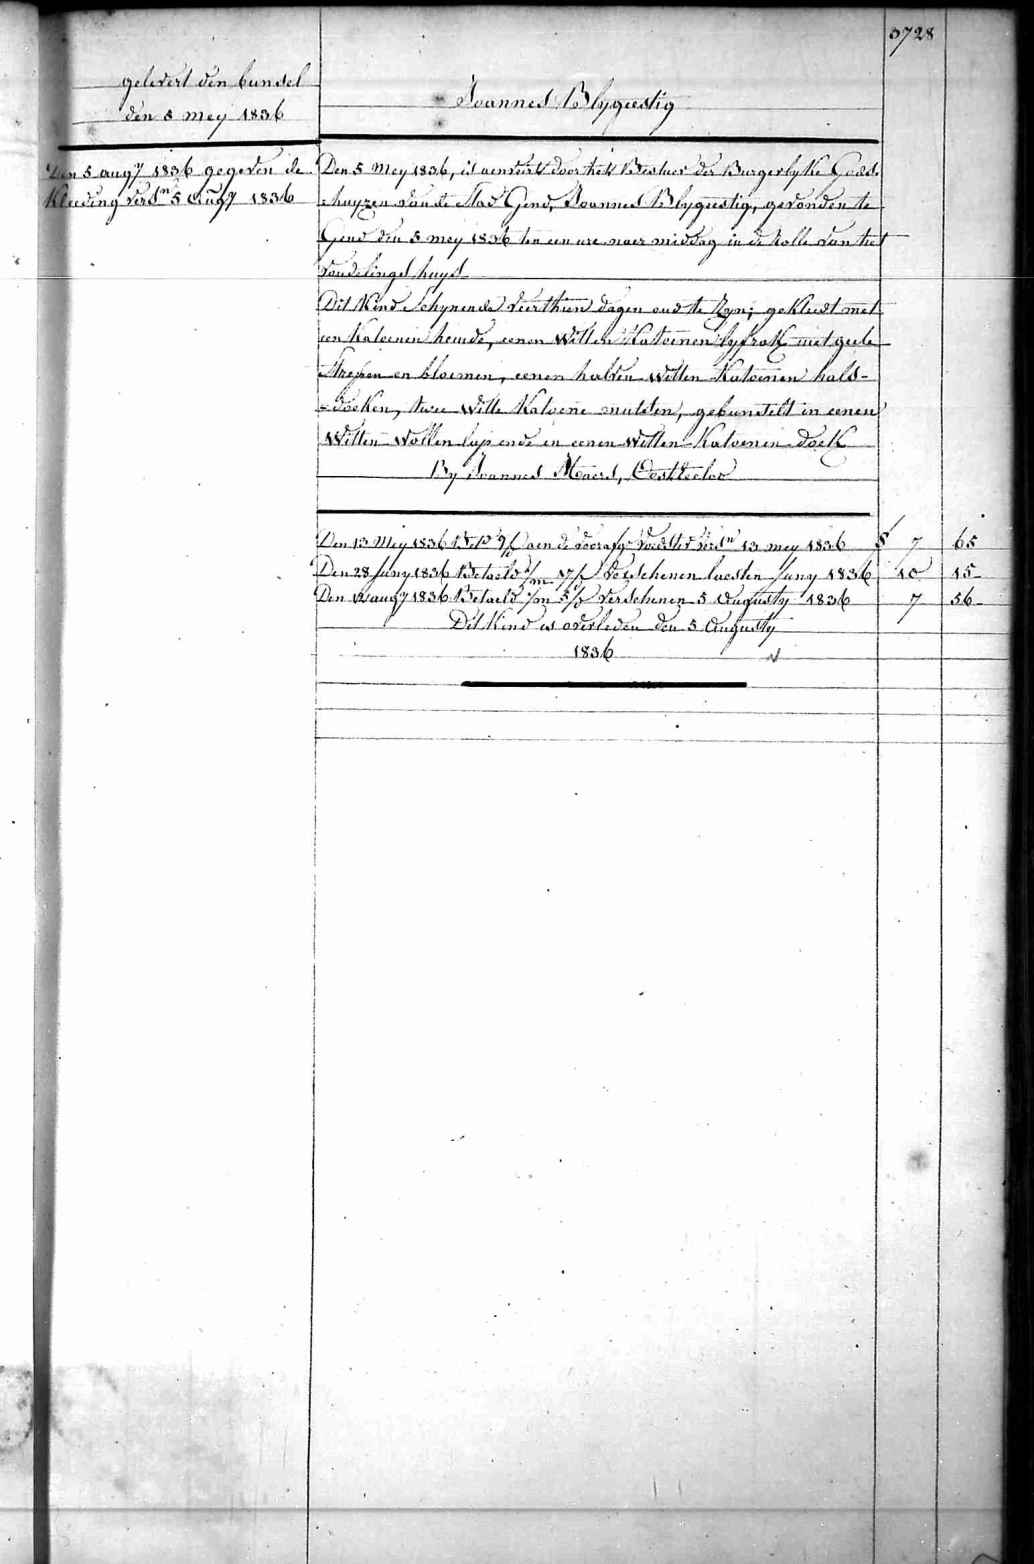 3728
gelevert den bunsel
den 5 mey 1836
Joannes Blygeestig
Den 5 augy 1836 gegeven de
Kleeding versn 5 Augy 1836
Den 5 Mey 1836, is aenveirt door het Bestuer der Burgerlyke Gods
huyzen van de Stad Gend, Joannes Blygeestig, gevonden te
Gend den 5 mey 1836 ten een ure naer middag in de Rolle van het
vondelings huys
Dit Kind schynende veerthien dagen oud te Zyn; gekleedt met
een Katoenen hemde, eenen Witten Katoenen lyfrok met geele
Strepen en bloemen, eenen halven witten Katoenen hals-
=doeken, twee Witte Katoene mutsen, gebunselt in eenen
Witten Wollen lap ende in eenen Witten Katoenen doek
By Joannes Maers, Oosteecloo
Den 13 Mey 1836 aen de voorafge voedster versn 13 mey 1836 7 65
Den 28 Juny 1836 Betaeld Verschenen laesten Juny 1836 10 15
Den 12 augy 1836 Betaeld Verschenen 5 Augusty 1836 7 56
Dit Kind is overleden den 5 Augusty
1836